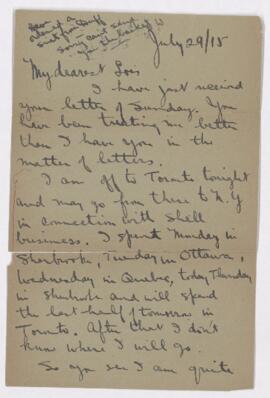 July 29/15
My dearest Lois
I have just received
your letter of Sunday. You
have been treating me better
than I have you in the
matter of letters.
I am off to Toronto tonight
and may go from there to N.Y
in connection with Shell
business. I spent Monday in
Sherbrooke, Tuesday in Ottawa,
Wednesday in Quebec, today Thursday
in Sherbrooke and will spend
the last half of tomorrow in
Toronto. After that I don't
know where I will go.
So you see I am quite